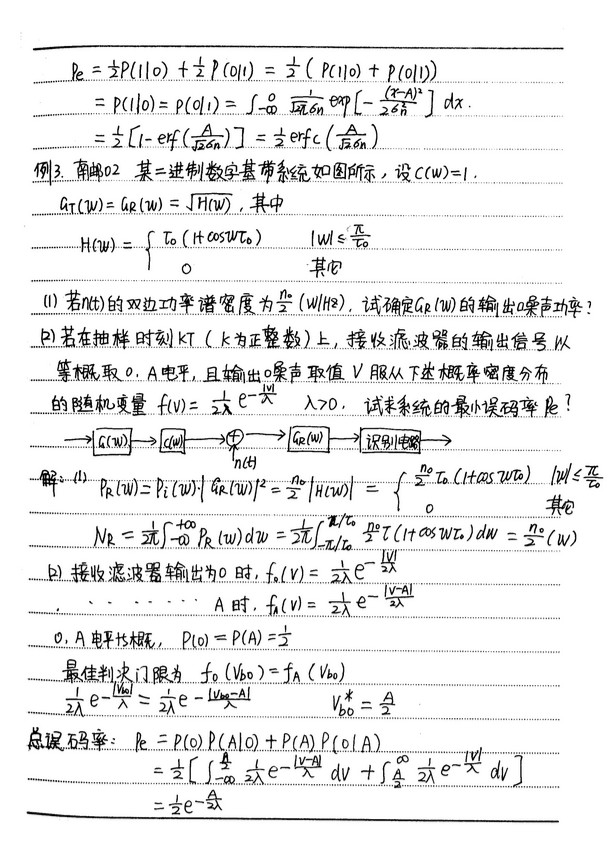 Pe = 1/2 P(1|0) + 1/2 P(0|1) = 1/2 ( P(1|0) + P(0|1))
= P(1|0) = P(0|1) = ∫_{-∞}^{0} 1/(√2π σn) exp[ - (x-A)²/(2σn²) ] dx.
= 1/2 [1-erf(A/(√2σn))] = 1/2 erfc(A/(√2σn))
例3. 南邮02 某二进制数字基带系统如图所示,设C(W)=1.
GT(W)=GR(W)=√H(W),其中
H(W) = { τ0(1+cosWτ0) |W|≤π/τ0
0 其它
(1) 若n(t)的双边功率谱密度为n0/2 (W/Hz), 试确定GR(W)的输出噪声功率?
(2) 若在抽样时刻KT ( K为正整数) 上, 接收滤波器的输出信号以
等概取0, A电平, 且输出噪声取值V服从下述概率密度分布
的随机变量 f(V) = 1/(2λ) e^{-|V|/λ} λ>0. 试求系统的最小误码率Pe?
→ G(W) → C(W) → ⊕ → GR(W) → 识别电路 →
n(t)
解: (1) PR(W)=Pi(W)·|GR(W)|² = n0/2 |H(W)| = { n0/2 τ0 (1+cosWτ0) |W|≤π/τ0
0 其它
NR = 1/2π ∫_{-∞}^{+∞} PR(W)dW = 1/2π ∫_{-π/τ0}^{π/τ0} n0/2 τ(1+cosWτ0)dW = n0/2 (W)
(2) 接收滤波器输出为0时, f0(V) = 1/(2λ) e^{-|V|/2λ}
. . . . . . . A时, fA(V) = 1/(2λ) e^{-|V-A|/2λ}
0, A电平均概, P(0) = P(A) = 1/2
最佳判决门限为 f0(Vb0) = fA(Vb0)
1/(2λ) e^{-|Vb0|/λ} = 1/(2λ) e^{-|Vb0-A|/λ} Vb0* = A/2
总误码率: Pe = P(0)P(A|0) + P(A)P(0|A)
= 1/2 [ ∫_{-∞}^{A/2} 1/(2λ) e^{-|V-A|/λ} dV + ∫_{A/2}^{∞} 1/(2λ) e^{-|V|/λ} dV ]
= 1/2 e^{-A/2λ}